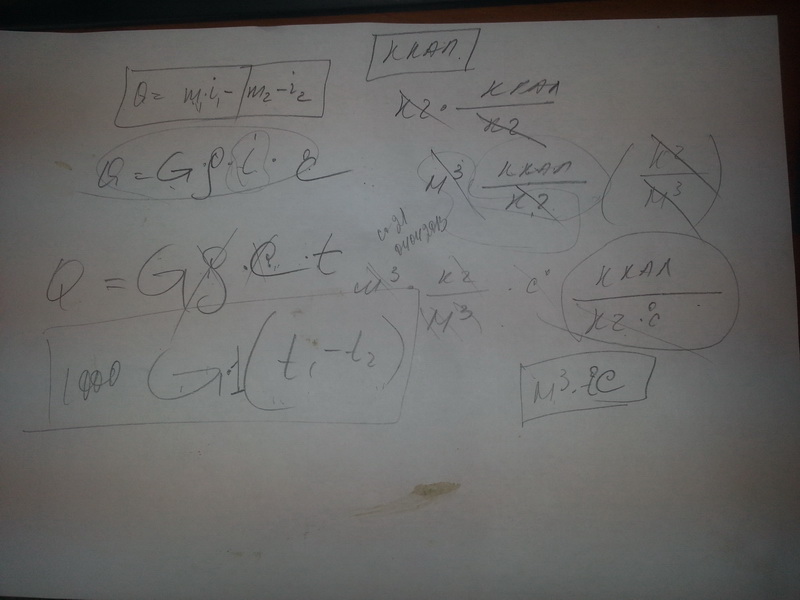 ккал
Q = m₁·i₁ - m₂-i₂
кг · ккал/кг
Q = G·ρ·i·
м³ · ккал/кг (кг/м³)
Q = Gρ·c·t
м³ · кг/м³ · c° ккал/кг·°c
1000 G·1(t₁-t₂)
м³·°C